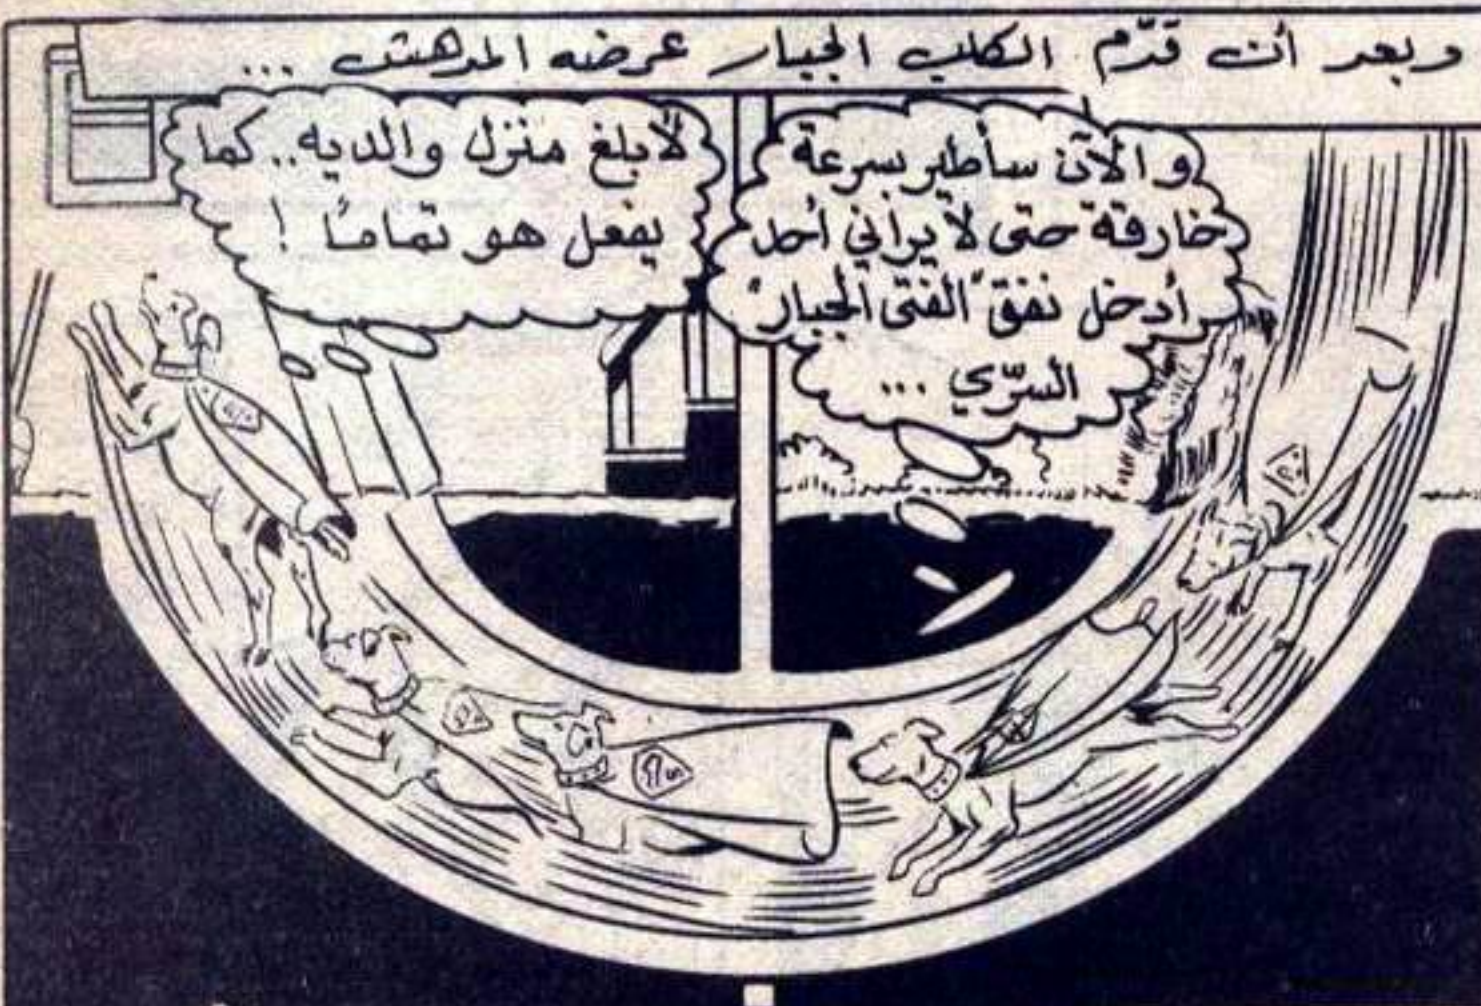 وبعد أن قدّم الكلب الجبار عرضه المدهش ...
والآن سأطير بسرعة
خارقة حتى لا يراني أحد
أدخل نفق "الفتى الجبار"
السرّي ...
لأبلغ منزل والديه.. كما
يفعل هو تمامًا !